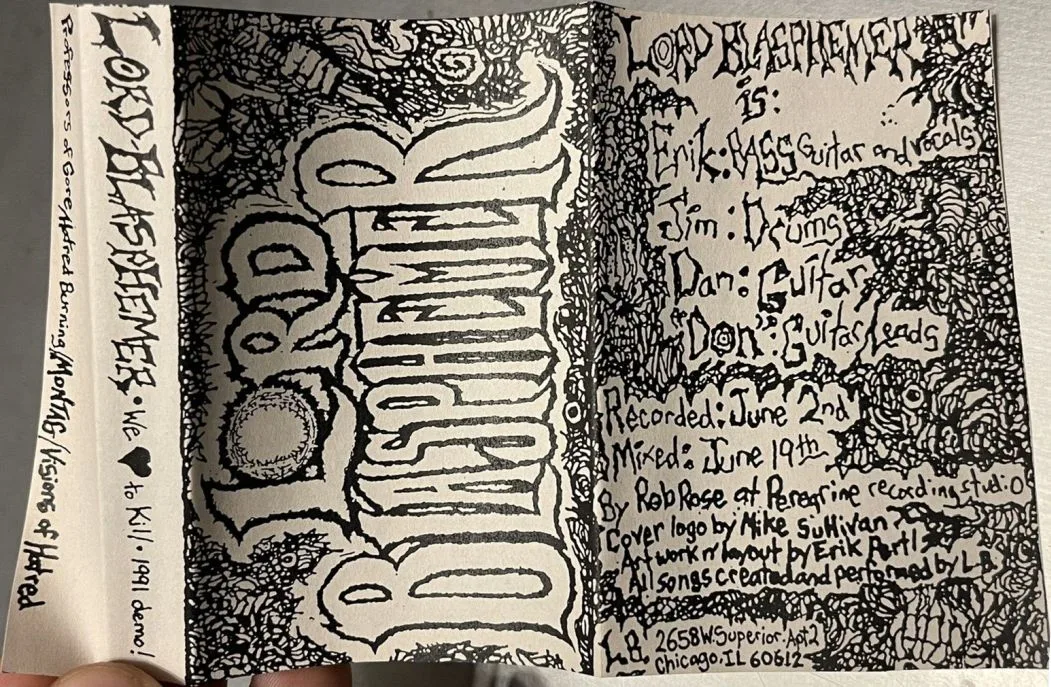 Professors of Gore/Hatred Burning/MONTAG/Visions of Hatred
LORD BLASPHEMER • We ♥ to Kill • 1991 demo!
LORD
BLASPHEMER
LORD BLASPHEMER
is:
Erik: BASS Guitar and vocals
Jim: Drums
Dan: Guitar
"Don": Guitar Leads
Recorded: June 2nd
Mixed: June 19th
By Rob Rose at Peregrine recording studio
Cover logo by Mike Sullivan
Artwork n' layout by Erik Partl
All songs created and performed by L.B.
L.B. 2658 W. Superior. Apt 2
Chicago, IL 60612